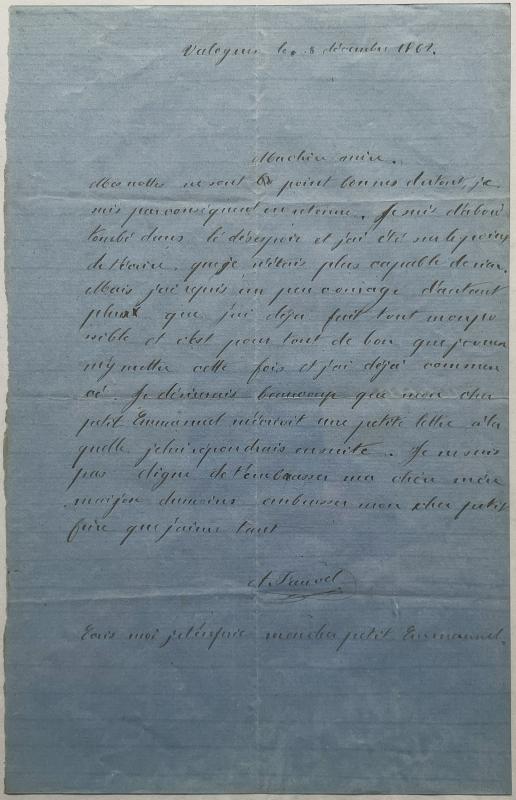 Valognes le 8 décembre 1861.
Machère mère.
Mes nottes ne sont point bonnes dutout, je
suis parconséquent en retenue. Je suis d'abord
tombé dans le désespoir et j'ai été sur le point
de t'écrire que je n'étais plus capable de rien.
Mais j'ai repris un peu courage d'autant
plus que j'ai déjà fait tout mon po
ssible et c'est pour tout de bon que je veux
m'y mettre cette fois et j'ai déjà commen
cé. Je désirerais beaucoup que mon cher
petit Emmanuel m'écrivit une petite lettre à la
quelle je lui répondrais ensuite. Je ne suis
pas digne de t'embrasser ma chère mère
mais je dumoins embrasser mon cher petit
frère que j'aime tant
Ecris moi je t'en prie mon cher petit Emmanuel.